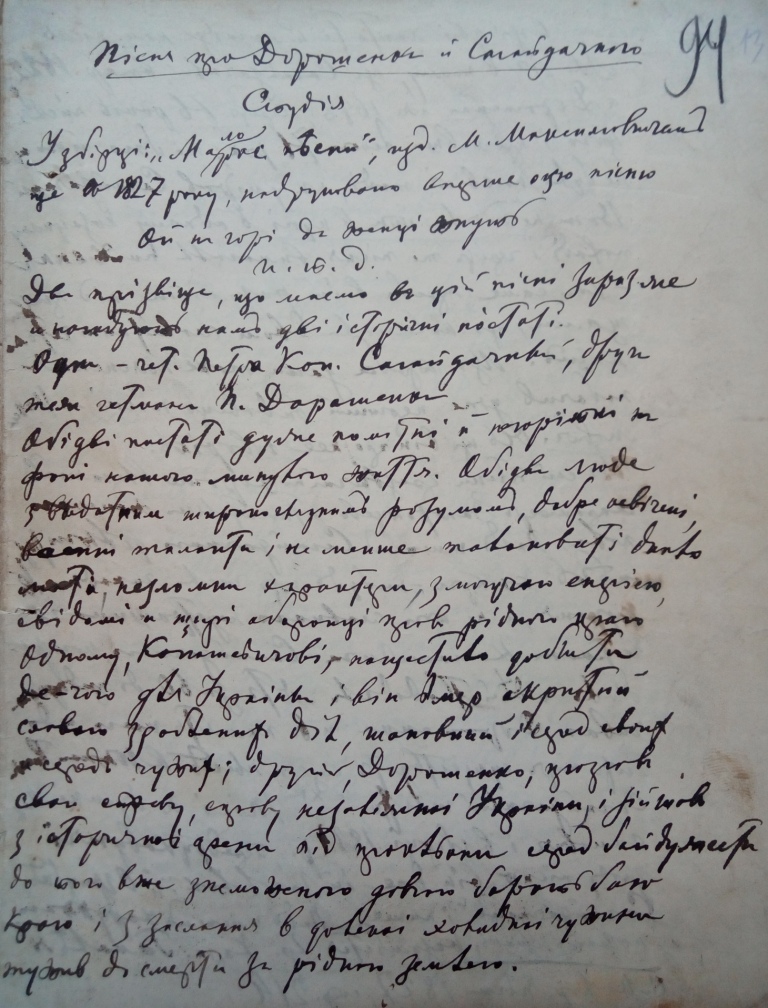 Пісня про Дорошенка й Сагайдачного
94
13
Студія
У збірці: „Малорос. пѣсни", изд. М. Максимовичамъ
ще в 1827 року, надруковано вперше оцю пісню
Ой на горі да женці жнутъ
и. т. д.
Два прізвища, що маємо въ цій пісні зараз же
и нагадуютъ намъ дві історичні постаті.
Один – гет. Петра Кон. Сагайдачный, друга
гетмана П. Дорошенка
Обидві постаті дуже помітні й на
фоні нашого минулого життя. Обидва люде
з видатним широкоглядним розумомъ, добре освічені,
воєнні таланти і не менше талановиті
незломни характери, з могучою енергією,
свідомі и щирі оборонці прав рідного краю
Одному, Конашевичові, пощастило добитись
де-чого для України і він вмер окритий
славою зроблених діл, шановний і серед своїх
и середъ чужих; другий, Дорошенко, програв
свою справу, справу незалежної України, і зійшов
з історичної арени під серед байдужости
до того вже знеможеного довгою боротьбою
краю і з заслання в далекої холодної чужини
тужив до смерти за рідною землею.